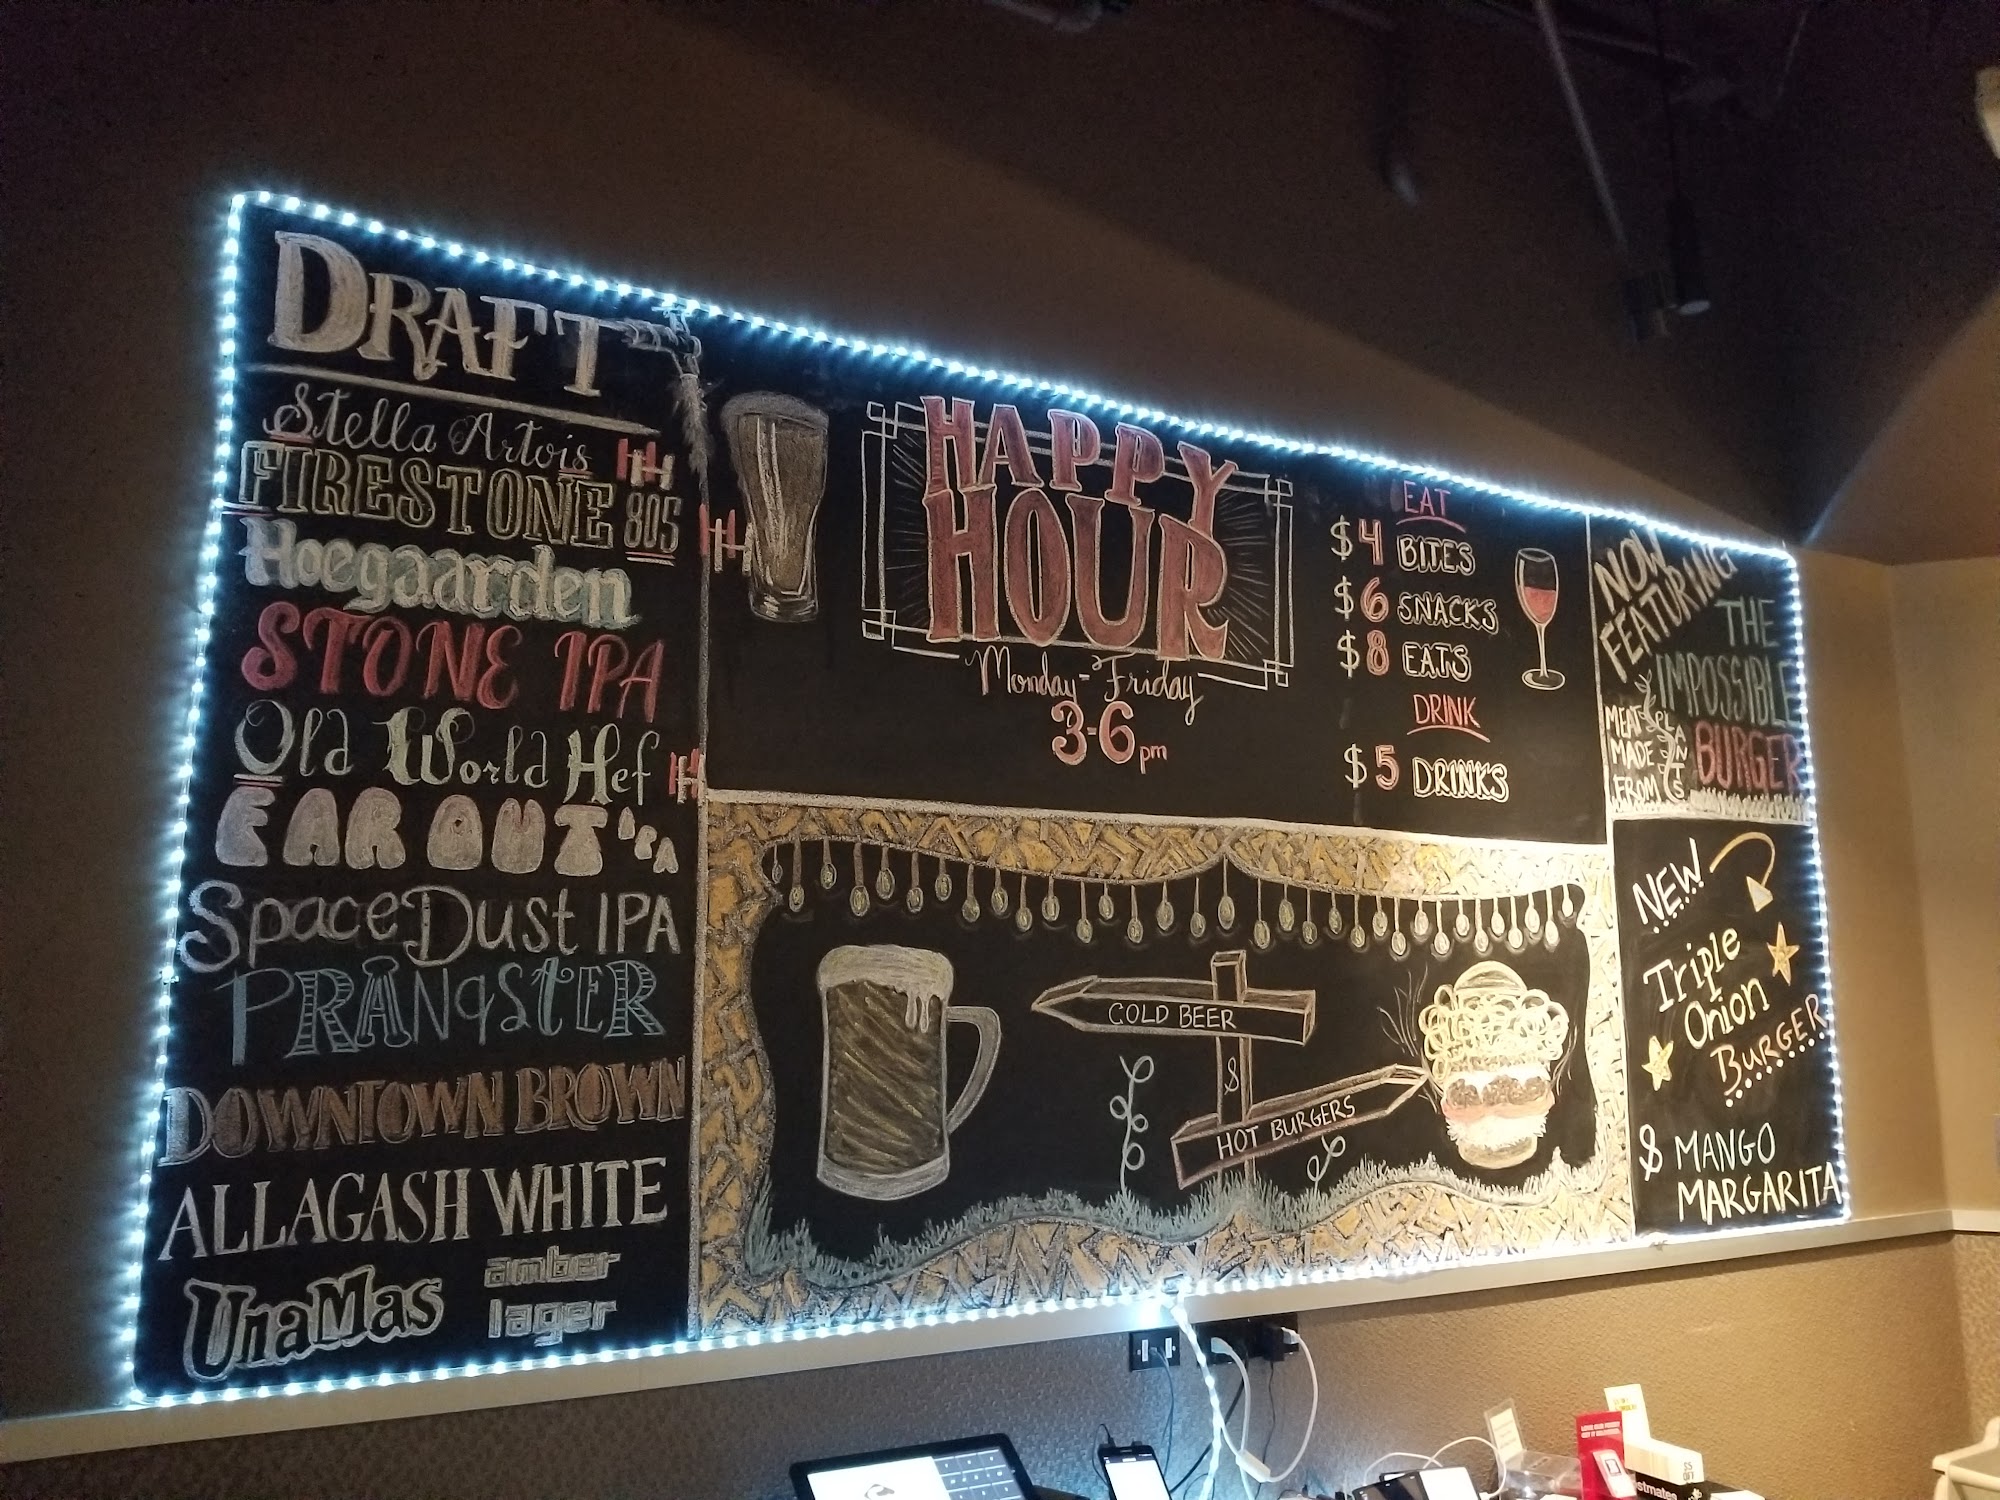 DRAFT
Stella Artois
FIRESTONE 805
Hoegaarden
STONE IPA
Old World Hef
EAR OUT IPA
Space Dust IPA
PRANqSTER
DOWNTOWN BROWN
ALLAGASH WHITE
UnaMas amber
lager
HAPPY
HOUR
Monday-Friday
3-6pm
EAT
$4 BITES
$6 SNACKS
$8 EATS
DRINK
$5 DRINKS
COLD BEER
$
HOT BURGERS
NOW
FEATURING
THE
IMPOSSIBLE
BURGER
MEAT
MADE
FROM
PLANTS
NEW
Triple
Onion
BURGER
$ MANGO
MARGARITA